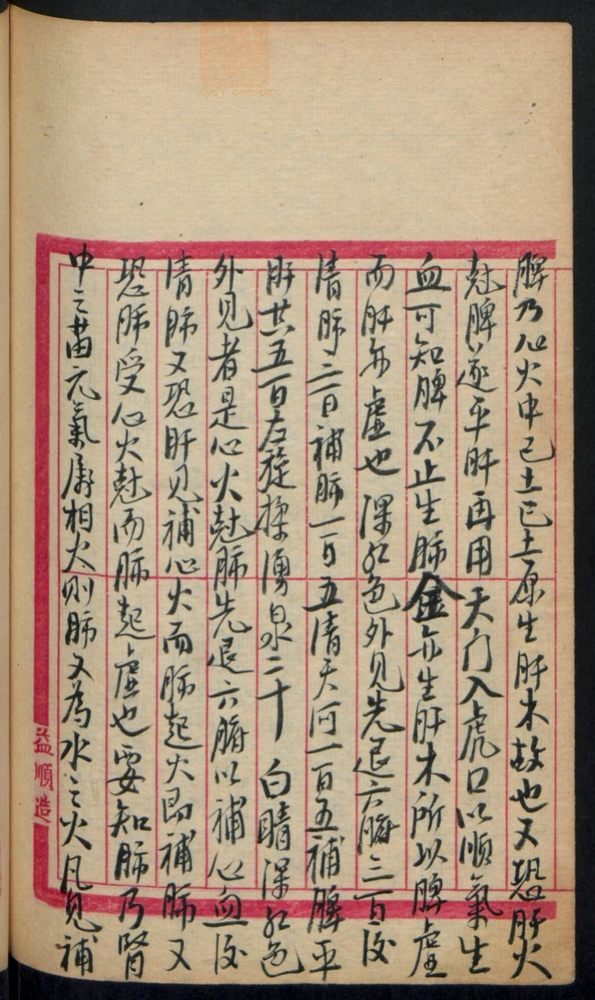 脾乃心火中己土己土原生肝木故也又恐肝火
尅脾遂平肝再用天门入虎口以順氣生
血可知脾不止生肺金亦生肝木所以脾虛
而肝亦虛也深红色外見先退六腑三百後
清肺二百補肺一百五清天河一百五補脾平
肝共五百左旋揉湧泉二十 白睛深红色
外見者是心火尅肺先退六腑以補心血後
清肺又恐肝見補心火而肺起火即補肺又
恐肺受心火尅而肺起虛也要知肺乃腎
中之苗元氣屬相火則肺又為水之火凡見補
益順造